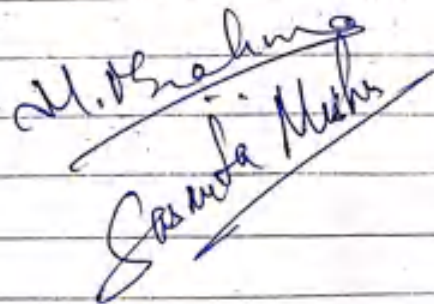 M. Brahma
Sasmita Mishra